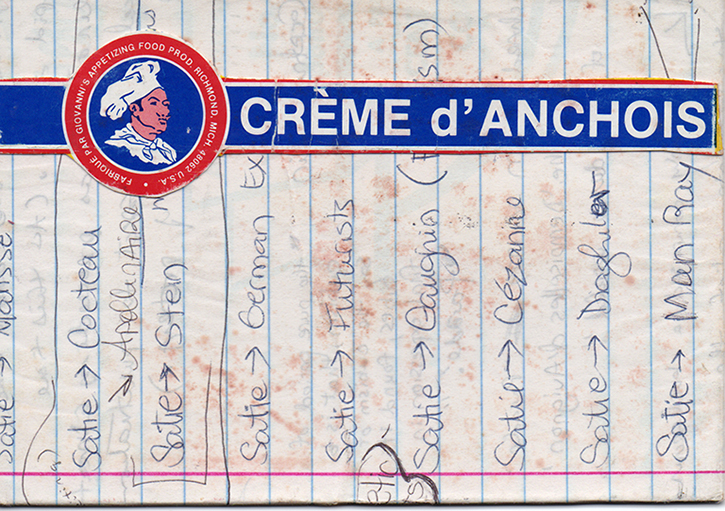 CRÈME d'ANCHOIS
FABRIQUÉ PAR GIOVANNI'S APPETIZING FOOD PROD. RICHMOND, MICH. 48062 U.S.A.
Satie → Matisse
Satie → Cocteau
→ Apollinaire
Satie → Stein
Satie → German Ex
Satie → Futurists
Satie → Gauguin (
sm)
Satie → Cézanne
Satie → Diaghilev
Satie → Man Ray